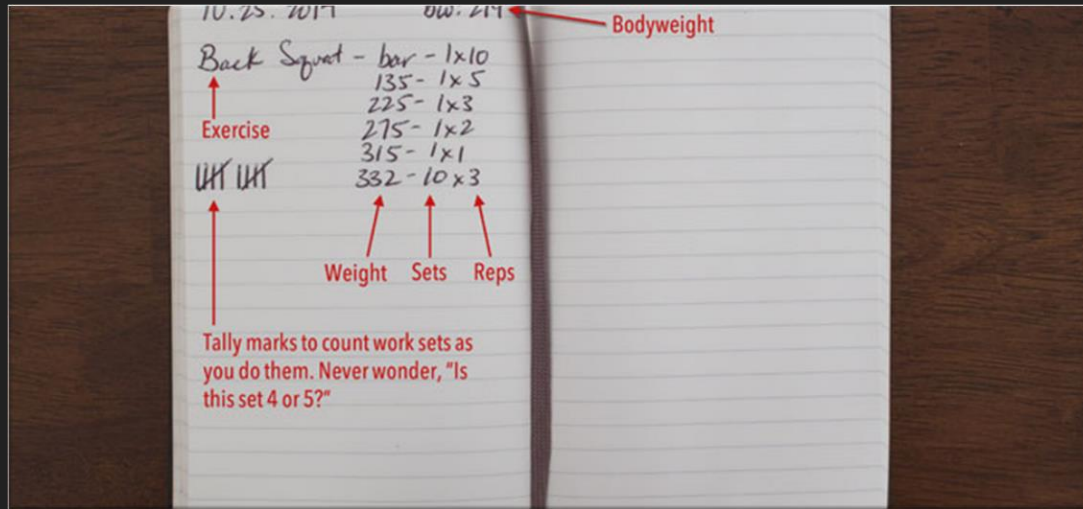 Bodyweight
Back Squat - bar - 1x10
135 - 1x5
225 - 1x3
275 - 1x2
315 - 1x1
332 - 10x3
Exercise
Weight Sets Reps
Tally marks to count work sets as
you do them. Never wonder, "Is
this set 4 or 5?"